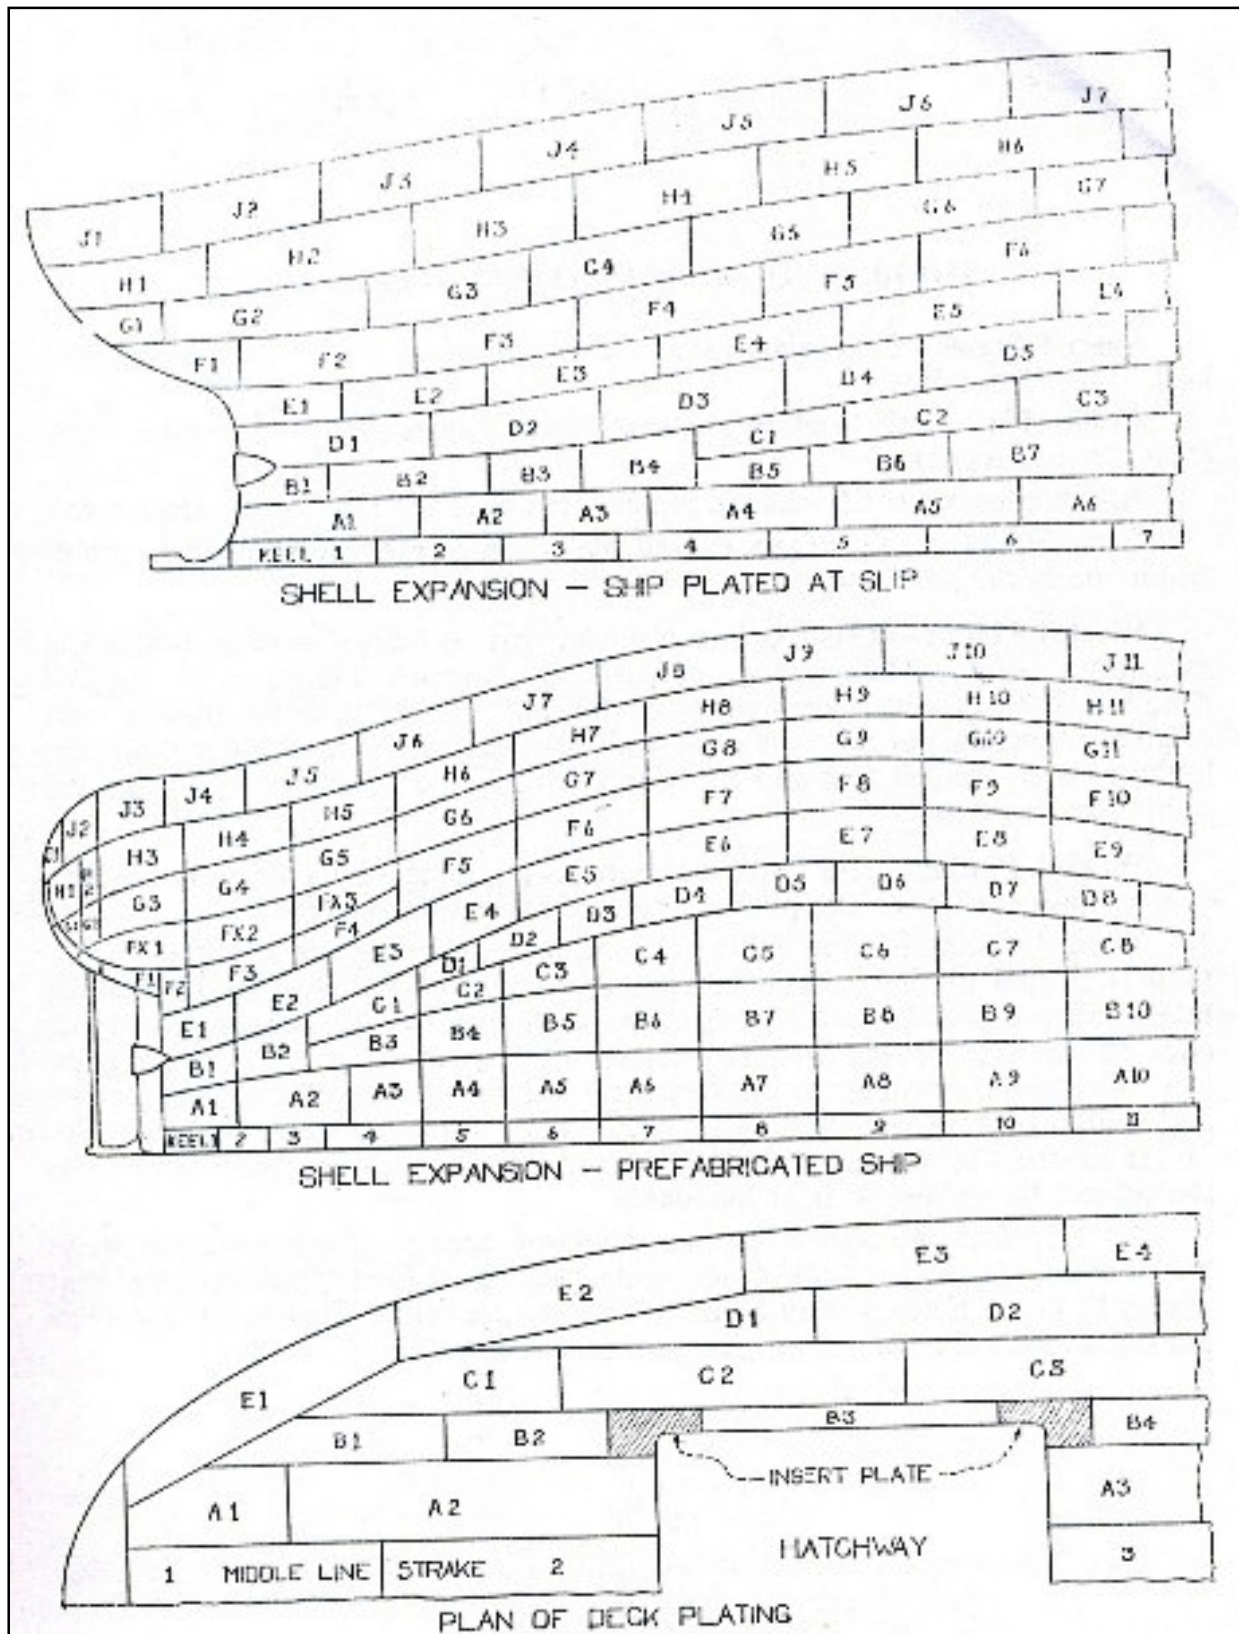 J1 J2 J3 J4 J5 J6 J7
H1 H2 H3 H4 H5 H6
G1 G2 G3 G4 G5 G6 G7
F1 F2 F3 F4 F5 F6
E1 E2 E3 E4 E5
D1 D2 D3 D4 D5
C1 C2 C3
B1 B2 B3 B4 B5 B6 B7
A1 A2 A3 A4 A5 A6
KEEL 1 2 3 4 5 6 7
SHELL EXPANSION – SHIP PLATED AT SLIP
J2 J3 J4 J5 J6 J7 J8 J9 J10 J11
H1 H3 H4 H5 H6 H7 H8 H9 H10 H11
G3 G4 G5 G6 G7 G8 G9 G10 G11
FX1 FX2 FX3
F1 F2 F3 F4 F5 F6 F7 F8 F9 F10
E1 E2 E3 E4 E5 E6 E7 E8 E9
D1 D2 D3 D4 D5 D6 D7 D8
C1 C2 C3 C4 C5 C6 C7 C8
B1 B2 B3 B4 B5 B6 B7 B8 B9 B10
A1 A2 A3 A4 A5 A6 A7 A8 A9 A10
KEEL 1 2 3 4 5 6 7 8 9 10 11
SHELL EXPANSION – PREFABRICATED SHIP
E1 E2 E3 E4
D1 D2
C1 C2 C3
B1 B2 B3 B4
INSERT PLATE
A1 A2 A3
HATCHWAY
1 MIDDLE LINE STRAKE 2 3
PLAN OF DECK PLATING